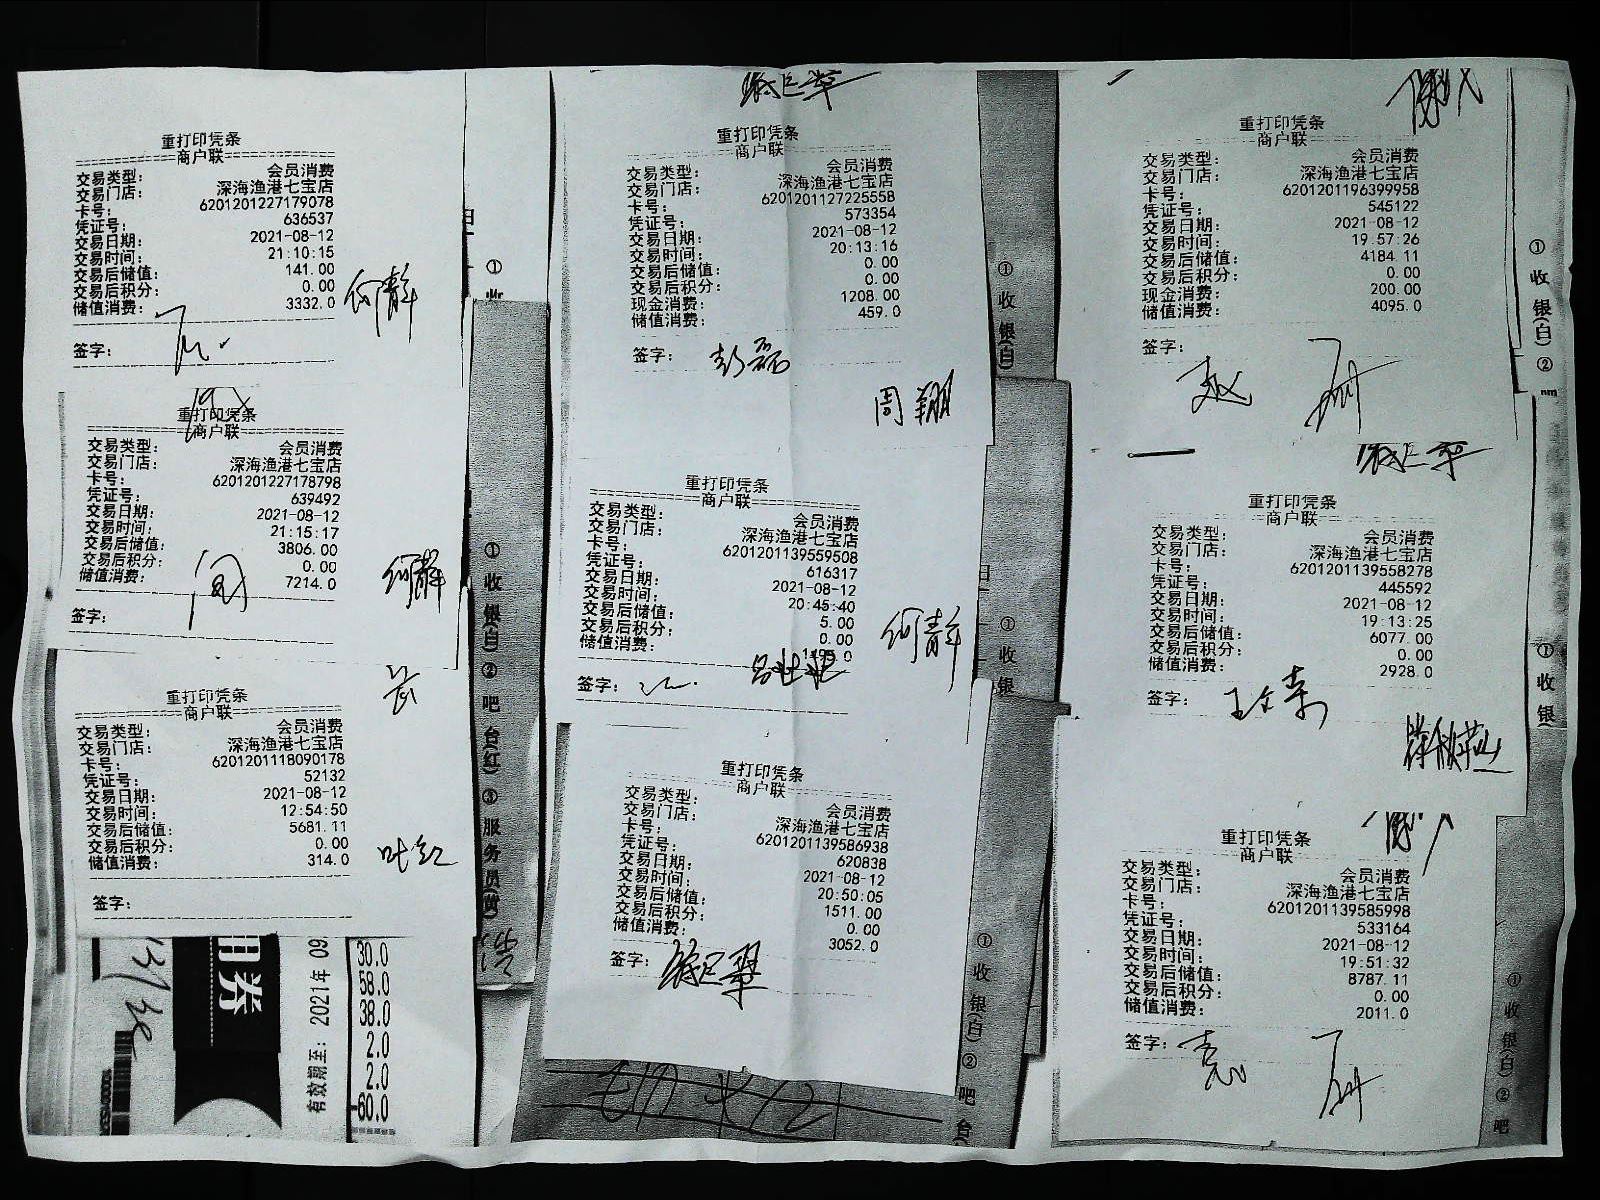 重打印凭条
商户联
交易类型： 会员消费
交易门店： 深海渔港七宝店
卡号： 6201201227179078
凭证号： 636537
交易日期： 2021-08-12
交易时间： 21:10:15
交易后储值： 141.00
交易后积分： 0.00
储值消费： 3332.0
何静
签字：
重打印凭条
商户联
交易类型： 会员消费
交易门店： 深海渔港七宝店
卡号： 6201201227178798
凭证号： 639492
交易日期： 2021-08-12
交易时间： 21:15:17
交易后储值： 3806.00
交易后积分： 0.00
储值消费： 7214.0
何静
签字：
重打印凭条
商户联
交易类型： 会员消费
交易门店： 深海渔港七宝店
卡号： 6201201118090178
凭证号： 52132
交易日期： 2021-08-12
交易时间： 12:54:50
交易后储值： 5681.11
交易后积分： 0.00
储值消费： 314.0
叶红
签字：
用券
有效期至： 2021年 09
30.0
58.0
38.0
2.0
2.0
60.0
①收
①收银(白) ②吧台(红) ③服务员(黄)
重打印凭条
商户联
交易类型： 会员消费
交易门店： 深海渔港七宝店
卡号： 6201201127225558
凭证号： 573354
交易日期： 2021-08-12
交易时间： 20:13:16
交易后储值： 0.00
交易后积分： 0.00
现金消费： 1208.00
储值消费： 459.0
签字： 彭磊
周翔
重打印凭条
商户联
交易类型： 会员消费
交易门店： 深海渔港七宝店
卡号： 6201201139559508
凭证号： 616317
交易日期： 2021-08-12
交易时间： 20:45:40
交易后储值： 5.00
交易后积分： 0.00
储值消费：
何静
签字：
重打印凭条
商户联
交易类型： 会员消费
交易门店： 深海渔港七宝店
卡号： 6201201139586938
凭证号： 620838
交易日期： 2021-08-12
交易时间： 20:50:05
交易后储值： 1511.00
交易后积分： 0.00
储值消费： 3052.0
签字：
①收银(白)
①收银
①收银(白) ②吧台(
重打印凭条
商户联
交易类型： 会员消费
交易门店： 深海渔港七宝店
卡号： 6201201196399958
凭证号： 545122
交易日期： 2021-08-12
交易时间： 19:57:26
交易后储值： 4184.11
交易后积分： 0.00
现金消费： 200.00
储值消费： 4095.0
签字：
赵
重打印凭条
商户联
交易类型： 会员消费
交易门店： 深海渔港七宝店
卡号： 6201201139558278
凭证号： 445592
交易日期： 2021-08-12
交易时间： 19:13:25
交易后储值： 6077.00
交易后积分： 0.00
储值消费： 2928.0
签字：
重打印凭条
商户联
交易类型： 会员消费
交易门店： 深海渔港七宝店
卡号： 6201201139585998
凭证号： 533164
交易日期： 2021-08-12
交易时间： 19:51:32
交易后储值： 8787.11
交易后积分： 0.00
储值消费： 2011.0
签字：
①收银(白) ②
①收银(
①收银(白) ②吧